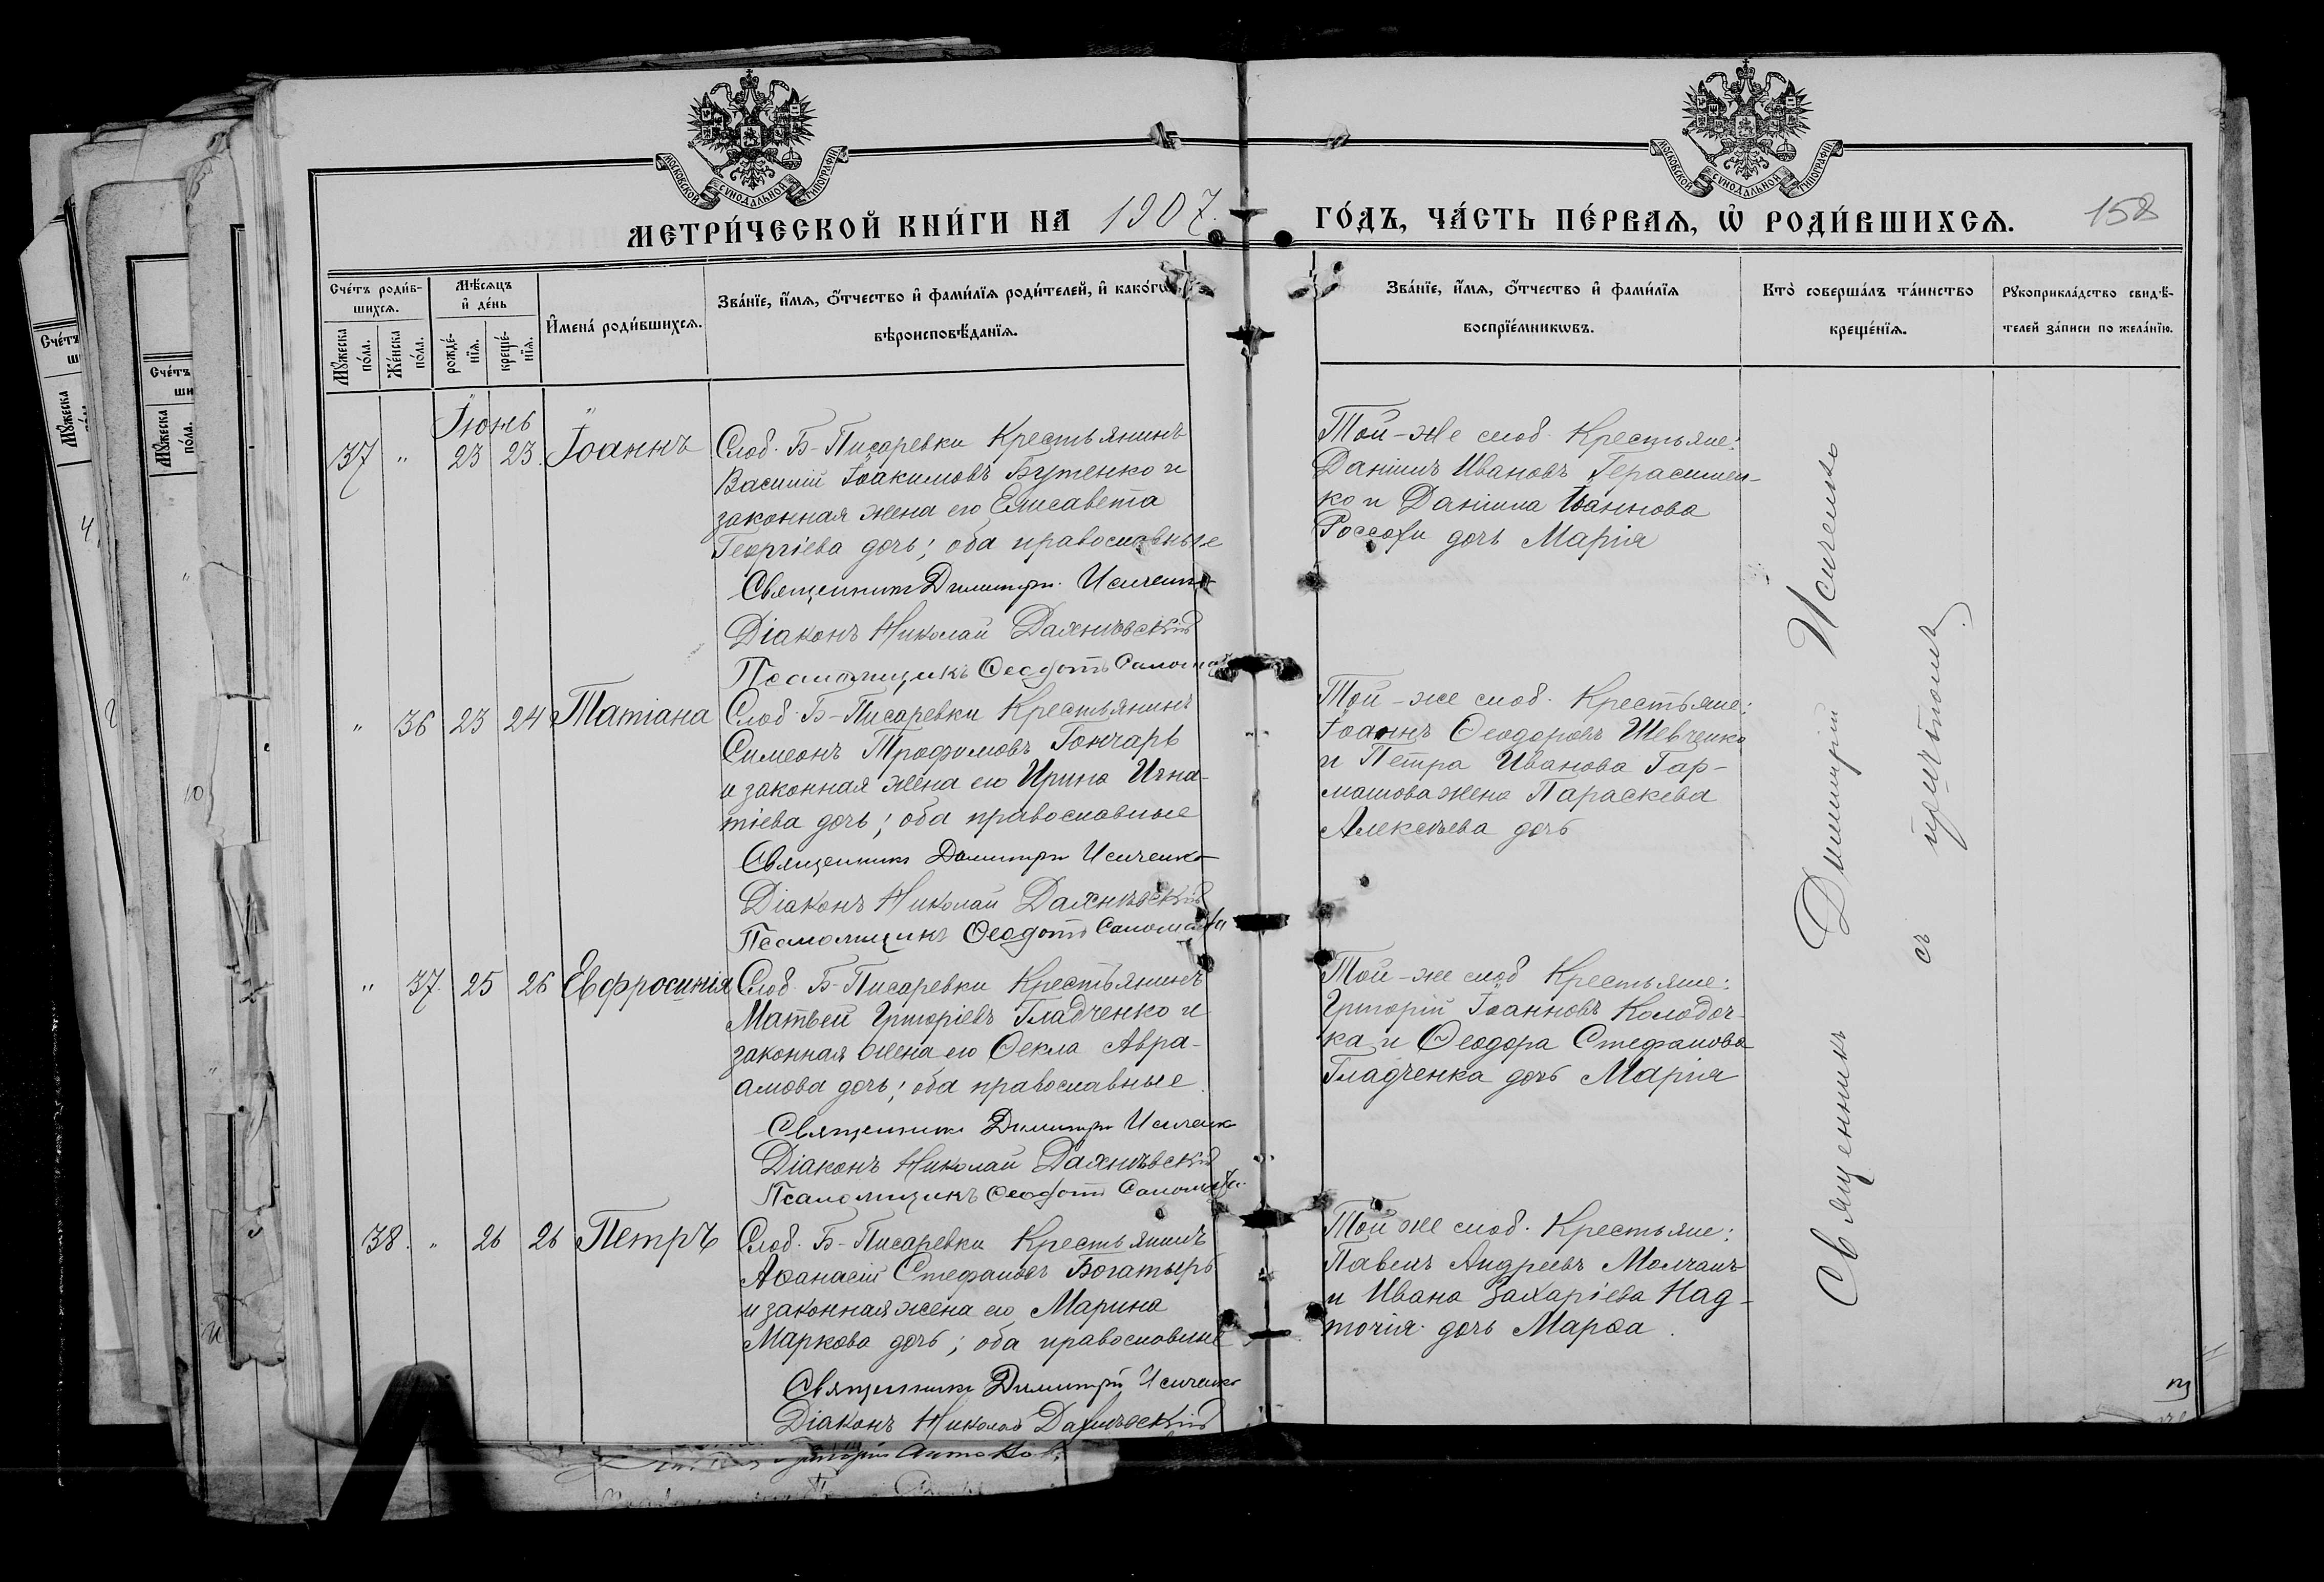 МОСКОВСКОЙ СѴНОДАЛЬНОЙ ТИПОГРАФІИ
МОСКОВСКОЙ СѴНОДАЛЬНОЙ ТИПОГРАФІИ
МЕТРИ́ЧЕСКОЙ КНИ́ГИ НА 1907.
ГО́ДЪ, ЧА́СТЬ ПЕ́РВАѦ, Ѽ РОДИ́ВШИХСѦ.
158
Сче́тъ роди́в-
шихсѧ.
Мꙋ́жеска
по́ла.
Же́нска
по́ла.
Мѣ́сѧцъ
и҆ де́нь
рожде́-
нїѧ.
креще́-
нїѧ.
И҆мена̀ роди́вшихсѧ.
Зва́нїе, и҆́мѧ, о҆́тчество и҆ фами́лїѧ роди́телей, и҆ како́гѡ
вѣроисповѣ́данїѧ.
Зва́нїе, и҆́мѧ, о҆́тчество и҆ фами́лїѧ
воспрїе́мникѡвъ.
Кто̀ соверша́лъ та́инство
креще́нїѧ.
Рꙋкоприкла́дство свидѣ́-
телей за́писи по жела́нїю.
Іюнь
37 " 23 23. Іоаннъ
Слоб. Б-Писаревки Крестьянинъ
Василій Іоакимовъ Бутенко и
законная жена его Елисавета
Георгіева дочь; оба православные
Священникъ Димитрій Исиченко
Діаконъ Николай Дахнѣвскій
Псаломщикъ Ѳеодотъ
Той-же слоб. Крестьяне:
Даніилъ Ивановъ Герасимен-
ко и Даніила Іоаннова
Россохи дочь Марія
" 36 23 24 Татіана
Слоб. Б-Писаревки Крестьянинъ
Симеонъ Трофимовъ Гончарь
и законная жена его Ирина Игна-
тіева дочь; оба православные
Священникъ Димитрій Исиченко
Діаконъ Николай Дахнѣвскій
Псаломщикъ Ѳеодотъ
Той-же слоб. Крестьяне:
Іоаннъ Ѳеодоровъ Шевченко
и Петра Иванова Гар-
машова жена Параскева
Алексѣева дочь
" 37. 25 26 Евфросинія
Слоб. Б-Писаревки Крестьянинъ
Матвей Григоріевъ Гладченко и
законная жена его Ѳекла Авра-
амова дочь; оба православные.
Священникъ Димитрій Исиченко
Діаконъ Николай Дахнѣвскій
Псаломщикъ Ѳеодотъ
Той-же слоб Крестьяне:
Григорій Іоанновъ Колодоч-
ка и Ѳеодора Стефанова
Гладченка дочь Марія
38. " 26 26 Петръ
Слоб. Б-Писаревки Крестьянинъ
Аѳанасій Стефановъ Богатырь
и законная жена его Марина
Маркова дочь; оба православные
Священникъ Димитрій Исиченко
Діаконъ Николай Дахнѣвскій
Той же слоб. Крестьяне:
Павелъ Андреевъ Молчанъ
и Ивана Захаріева Над-
точія дочь Марѳа.
Священникъ Димитрій Исиченко
съ причтомъ.